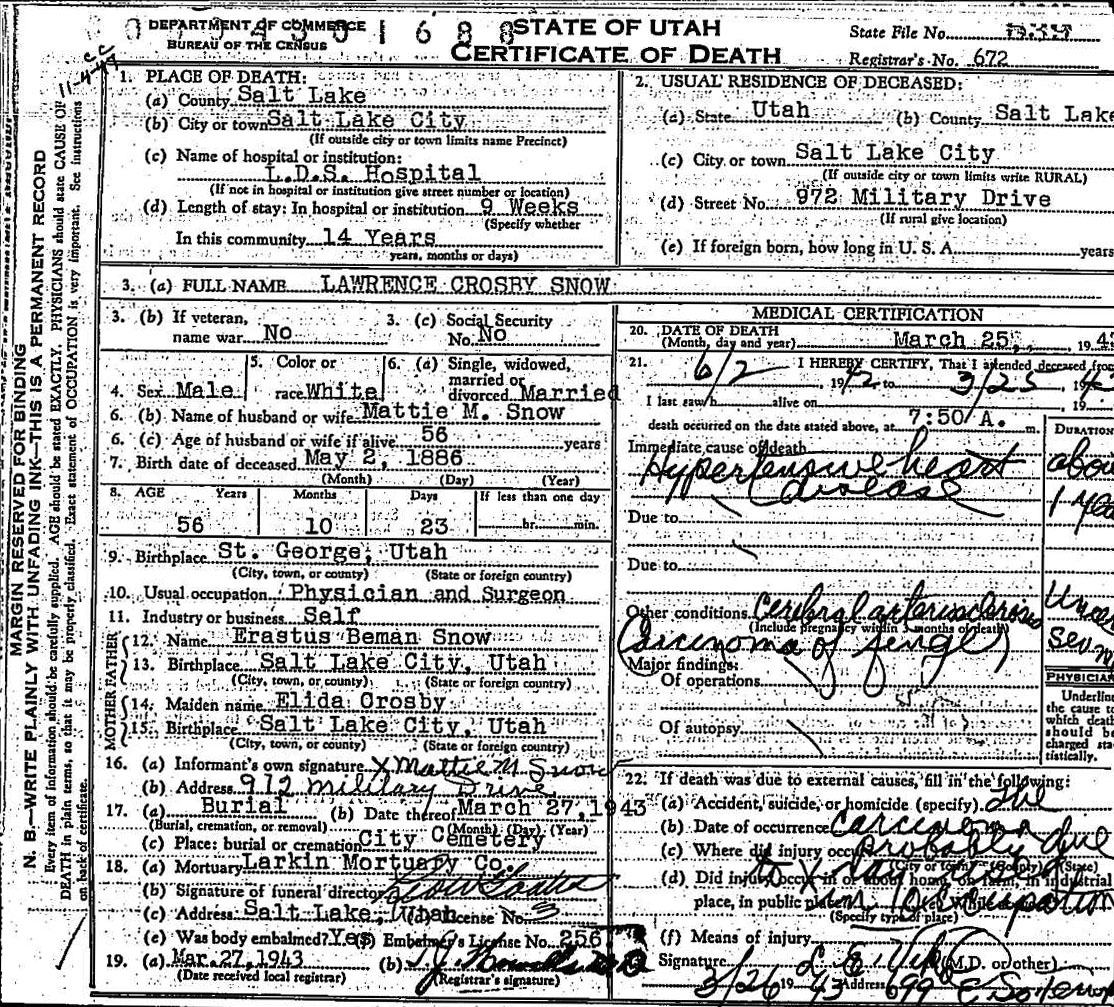 DEPARTMENT OF COMMERCE
BUREAU OF THE CENSUS
STATE OF UTAH
CERTIFICATE OF DEATH
State File No.
Registrar's No. 672
MARGIN RESERVED FOR BINDING
N. B.—WRITE PLAINLY WITH UNFADING INK—THIS IS A PERMANENT RECORD
Every item of information should be carefully supplied. AGE should be stated EXACTLY. PHYSICIANS should state CAUSE OF
DEATH in plain terms, so that it may be properly classified. Exact statement of OCCUPATION is very important. See instructions
on back of certificate.
1. PLACE OF DEATH:
(a) County Salt Lake
(b) City or town Salt Lake City
(If outside city or town limits name Precinct)
(c) Name of hospital or institution:
L.D.S. Hospital
(If not in hospital or institution give street number or location)
(d) Length of stay: In hospital or institution 9 Weeks
(Specify whether
In this community 14 Years
years, months or days)
2. USUAL RESIDENCE OF DECEASED:
(a) State Utah (b) County Salt Lake
(c) City or town Salt Lake City
(If outside city or town limits write RURAL)
(d) Street No. 972 Military Drive
(If rural give location)
(e) If foreign born, how long in U. S. A. years
3. (a) FULL NAME LAWRENCE CROSBY SNOW
3. (b) If veteran, name war No
3. (c) Social Security No. No
4. Sex Male
5. Color or race White
6. (a) Single, widowed, married or divorced Married
6. (b) Name of husband or wife Mattie M. Snow
6. (c) Age of husband or wife if alive 56 years
7. Birth date of deceased May 2, 1886
(Month) (Day) (Year)
8. AGE Years Months Days If less than one day
56 10 23 hr. min.
9. Birthplace St. George, Utah
(City, town, or county) (State or foreign country)
10. Usual occupation Physician and Surgeon
11. Industry or business Self
FATHER
12. Name Erastus Beman Snow
13. Birthplace Salt Lake City, Utah
(City, town, or county) (State or foreign country)
MOTHER
14. Maiden name Elida Crosby
15. Birthplace Salt Lake City, Utah
(City, town, or county) (State or foreign country)
16. (a) Informant's own signature X Mattie M Snow
(b) Address 972 Military Drive
17. (a) Burial (b) Date thereof March 27, 1943
(Burial, cremation, or removal) (Month) (Day) (Year)
(c) Place: burial or cremation City Cemetery
18. (a) Mortuary Larkin Mortuary Co.
(b) Signature of funeral director
(c) Address Salt Lake, Utah License No. 3
(e) Was body embalmed? Yes (f) Embalmer's License No. 256
19. (a) Mar. 27, 1943 (b)
(Date received local registrar) (Registrar's signature)
MEDICAL CERTIFICATION
20. DATE OF DEATH
(Month, day and year) March 25, 194
21. I HEREBY CERTIFY, That I attended deceased from
6/2 1942 to 3/25 194
I last saw h alive on 19
death occurred on the date stated above, at 7:50 A. m.
DURATION
Immediate cause of death
Hypertensive heart
disease
abou
1 yea
Due to
Due to
Other conditions Cerebral arteriosclerosis
(Include pregnancy within 3 months of death)
(Carcinoma of finger)
Uncer
Sev
Major findings:
Of operations
Of autopsy
PHYSICIAN
Underline
the cause to
which death
should be
charged sta-
tistically.
22. If death was due to external causes, fill in the following:
(a) Accident, suicide, or homicide (specify) The
(b) Date of occurrence carcinoma
(c) Where did injury occur probably due
(City or town) (County) (State)
(d) Did injury occur in or about home, on farm, in industrial
to X ray
place, in public place in occupation
(Specify type of place)
(f) Means of injury
Signature L. E. (M.D. or other)
3/26 1943 Address 699 E So Temp